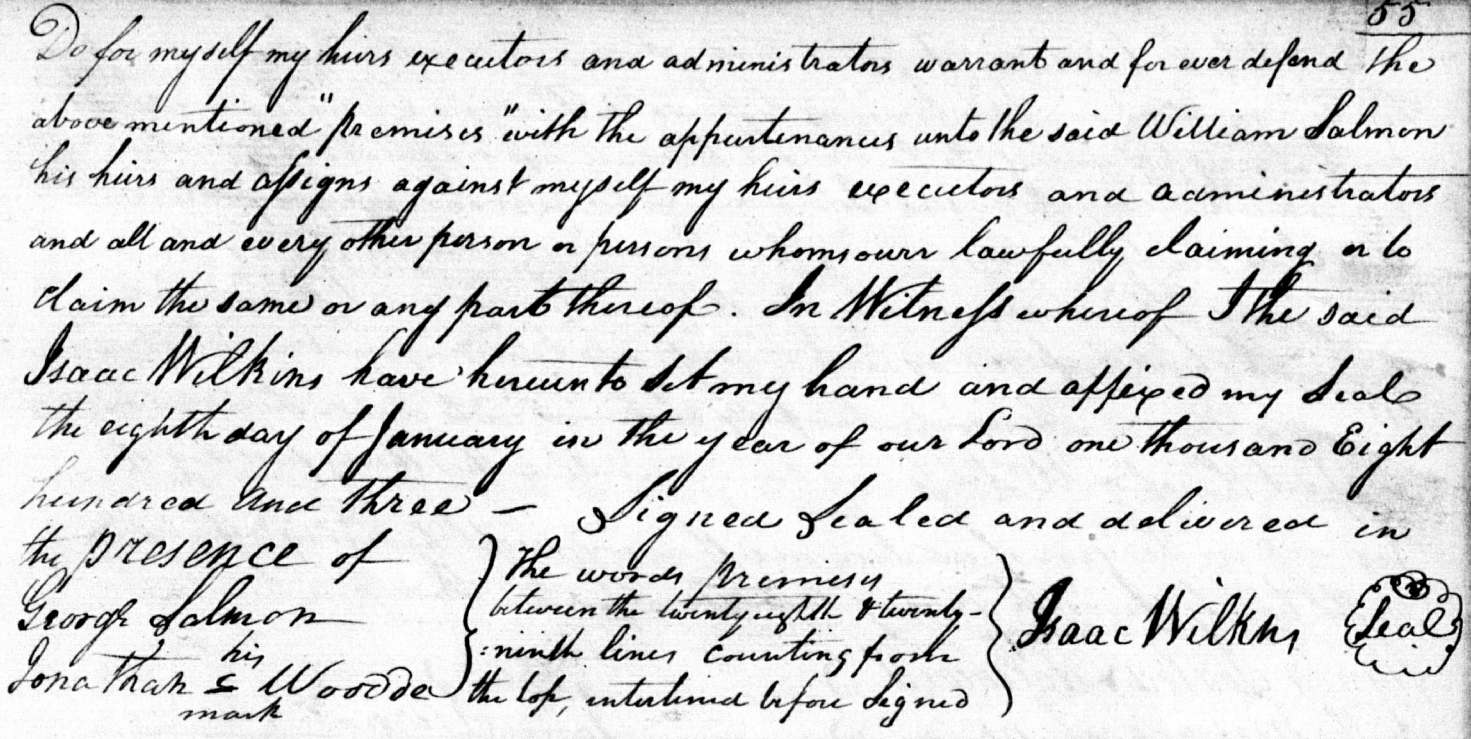 55
Do for myself my heirs executors and administrators warrant and forever defend the
above mentioned "premises" with the appurtenances unto the said William Salmon
his heirs and assigns against myself my heirs executors and administrators
and all and every other person or persons whomsoever lawfully claiming or to
claim the same or any part thereof. In Witness whereof I the said
Isaac Wilkins have hereunto set my hand and affixed my Seal
the eighth day of January in the year of our Lord one thousand Eight
hundred and three – Signed Sealed and delivered in
the presence of
George Salmon
his
Jonathan S Woodde
mark
The words premises
between the twenty eighth & twenty-
:ninth lines counting from
the top, interlined before signed
Isaac Wilkins
Seal